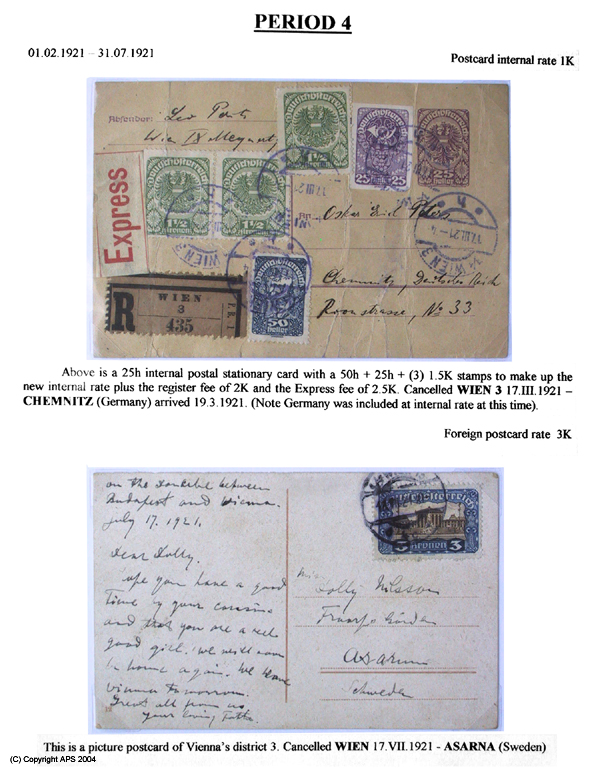 PERIOD 4
01.02.1921 – 31.07.1921
Postcard internal rate 1K
Absender: Leo
Wien IX
Deutschösterreich
1½ 1½
25 Heller 25
25 Heller
Deutschösterreich Deutschösterreich
1½ 1½ 1½ 1½
Express
An
17.III.21
WIEN 3
R
WIEN
3
435
50 Heller
Chemnitz, Deutsches Reich
No 33
Above is a 25h internal postal stationary card with a 50h + 25h + (3) 1.5K stamps to make up the
new internal rate plus the register fee of 2K and the Express fee of 2.5K. Cancelled WIEN 3 17.III.1921 –
CHEMNITZ (Germany) arrived 19.3.1921. (Note Germany was included at internal rate at this time).
Foreign postcard rate 3K
on the between
Budapest and Vienna.
July 17. 1921.
Deutschösterreich
3 Kronen 3
Dear Dolly.
ope you have a good
time
and that you are a
good girl. We will soon
home again. We
Vienna tomorrow.
all from us
your loving
Dolly Nilsson
Asarum
Schweden
This is a picture postcard of Vienna's district 3. Cancelled WIEN 17.VII.1921 - ASARNA (Sweden)
(C) Copyright APS 2004